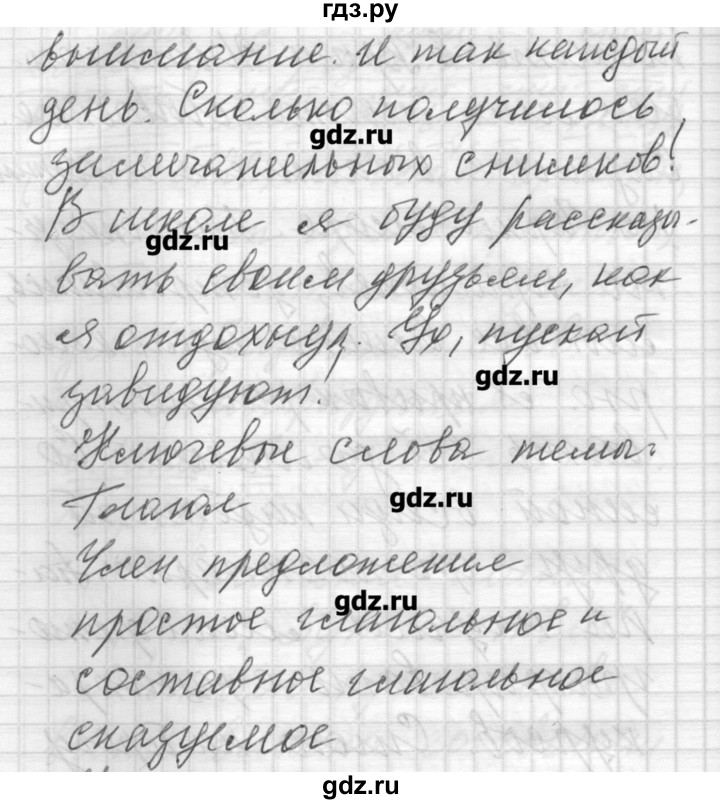 гдз.ру
внимание. И так каждый
день. Сколько получилось
gdz.ru
замечательных снимков!
В школе я буду рассказы-
gdz.ru
вать своим друзьям, как
я отдохнул. Ух, пускай
gdz.ru
завидуют!
Ключевые слова темы:
Глагол
gdz.ru
Член предложения
gdz.ru
простое глагольное и
составное глагольное
сказуемое
gdz.ru